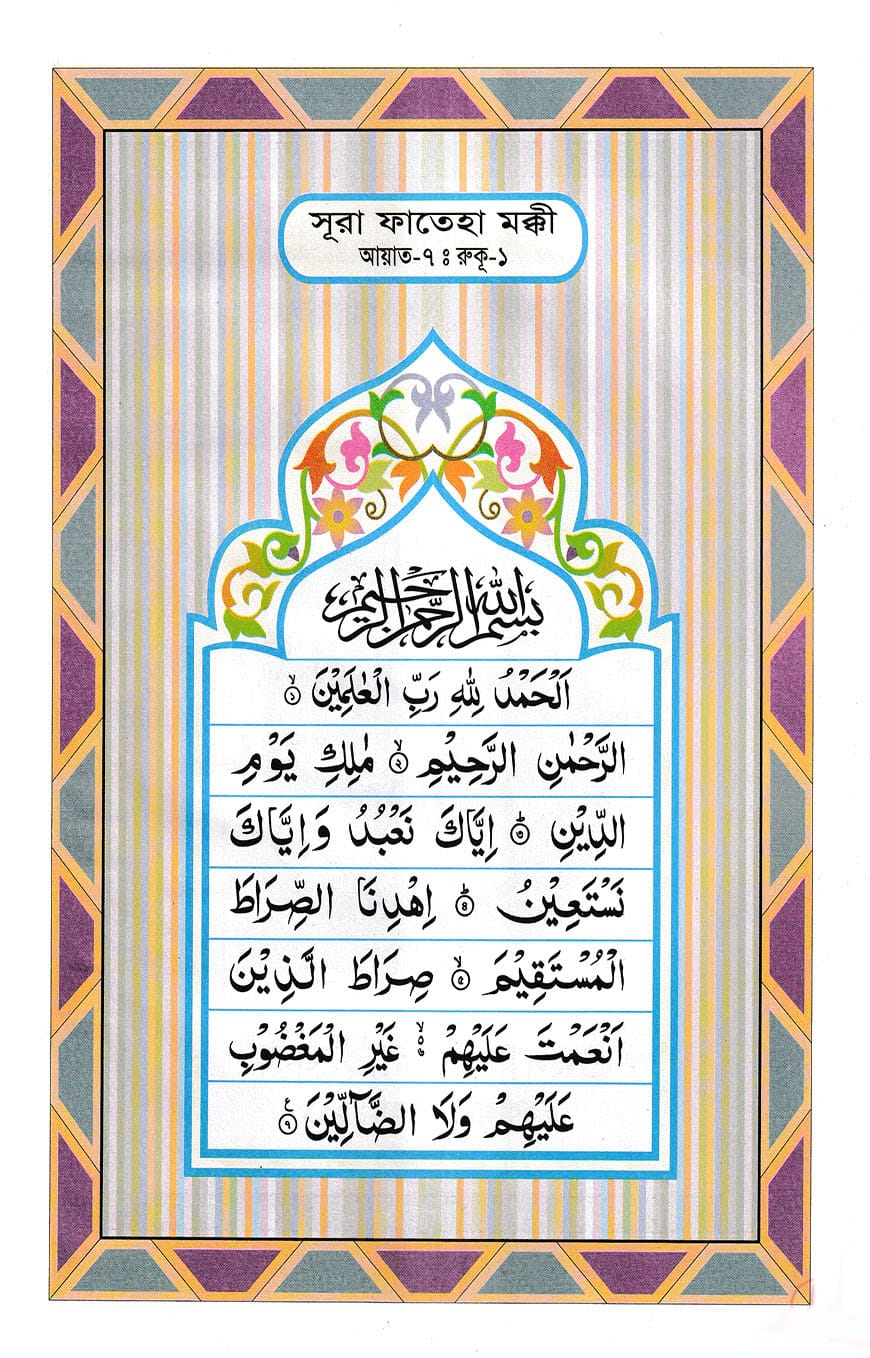 সূরা ফাতেহা মক্কী
আয়াত-৭ ঃ রুকূ-১
بسم الله الرحمن الرحيم
اَلْحَمْدُ لِلّٰهِ رَبِّ الْعٰلَمِيْنَ ۙ﴿১﴾
الرَّحْمٰنِ الرَّحِيْمِ ۙ﴿২﴾ مٰلِكِ يَوْمِ
الدِّيْنِ ؕ﴿৩﴾ اِيَّاكَ نَعْبُدُ وَاِيَّاكَ
نَسْتَعِيْنُ ؕ﴿৪﴾ اِهْدِنَا الصِّرَاطَ
الْمُسْتَقِيْمَ ۙ﴿৫﴾ صِرَاطَ الَّذِيْنَ
اَنْعَمْتَ عَلَيْهِمْ ۙ۬ غَيْرِ الْمَغْضُوْبِ
عَلَيْهِمْ وَلَا الضَّآلِّيْنَ ﴿৭﴾ ع